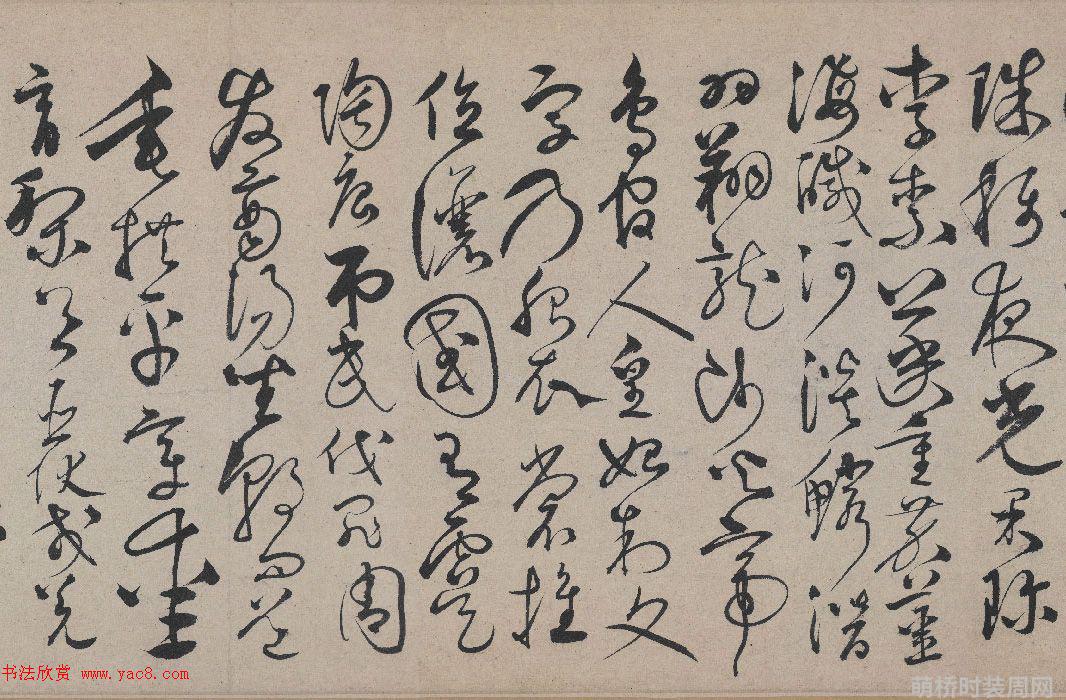 珠稱夜光果珍
李柰菜重芥薑
海鹹河淡鱗潛
羽翔龍師火帝
鳥官人皇始制文
字乃服衣裳推
位讓國有虞
陶唐弔民伐罪周
發商湯坐朝問道
垂拱平章
育黎首臣伏戎羌
书法欣赏 www.yac8.com
萌桥时装周网